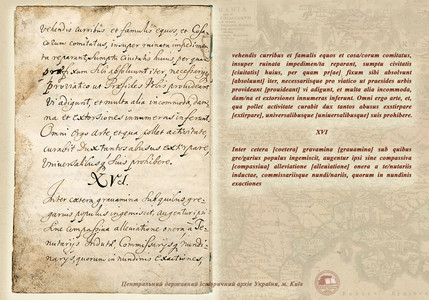 vehendis curribus et famulis equos, et Cosa¬
corum comitatus, insuper ruinata impedimen¬
ta reparant, sumptu Civitatis huius, per quam
præfixum Sibi absoluunt iter, necessariisq
pro viatico ut Præsides Urbis provideant
Vi adigunt, et multa alia incommoda, dam¬
na et Extorsiones innumeras inferunt.
Omni Ergo arte, et qua pollet activitate,
curabit Dux tantos abusus extirpare,
Universalibusq Suis prohibere.
XVI.
Inter cœtera gravamina Sub quibus gre¬
garius populus ingemiscit, augentur ipsi
Sine Compassiva alleviatione onera a Te¬
nutarijs Inductas, Commissarijsq nundi¬
narijs, quorum in nundinis exactiones,
vehendis curribus et famulis equos et cosa/corum comitatus,
insuper ruinata impedimen/ta reparant, sumptu civitatis
[ciuitatis] huius, per quam pr[ae] fixum sibi absolvunt
[absoluunt] iter, necessariisque pro viatico ut praesides urbis
provideant [prouideant] vi adigunt, et multa alia incommoda,
dam/na et extorsiones innumeras inferunt. Omni ergo arte, et,
qua pollet activitate curabit dux tantos abusus extirpare
[extirpare], universalibusque [uniuersalibusque] suis prohibere.
XVI
Inter cetera [coetera] gravamina [grauamina] sub quibus
gre/garius populus ingemiscit, augentur ipsi sine compassiva
[compassiua] alleviatione [alleuiatione] onera a te/nutariis
inductas, commissariisque nundi/nariis, quorum in nundinis
exactiones
Центральний державний історичний архів України, м. Київ